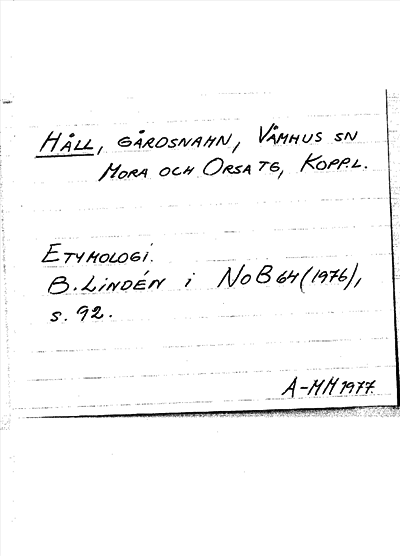 HÅLL, GÅRDSNAMN, VÅMHUS SN
MORA OCH ORSA TG, KOPP.L.
ETYMOLOGI.
B. LINDÉN i NoB 64 (1976),
s. 92.
A-MM 1977.